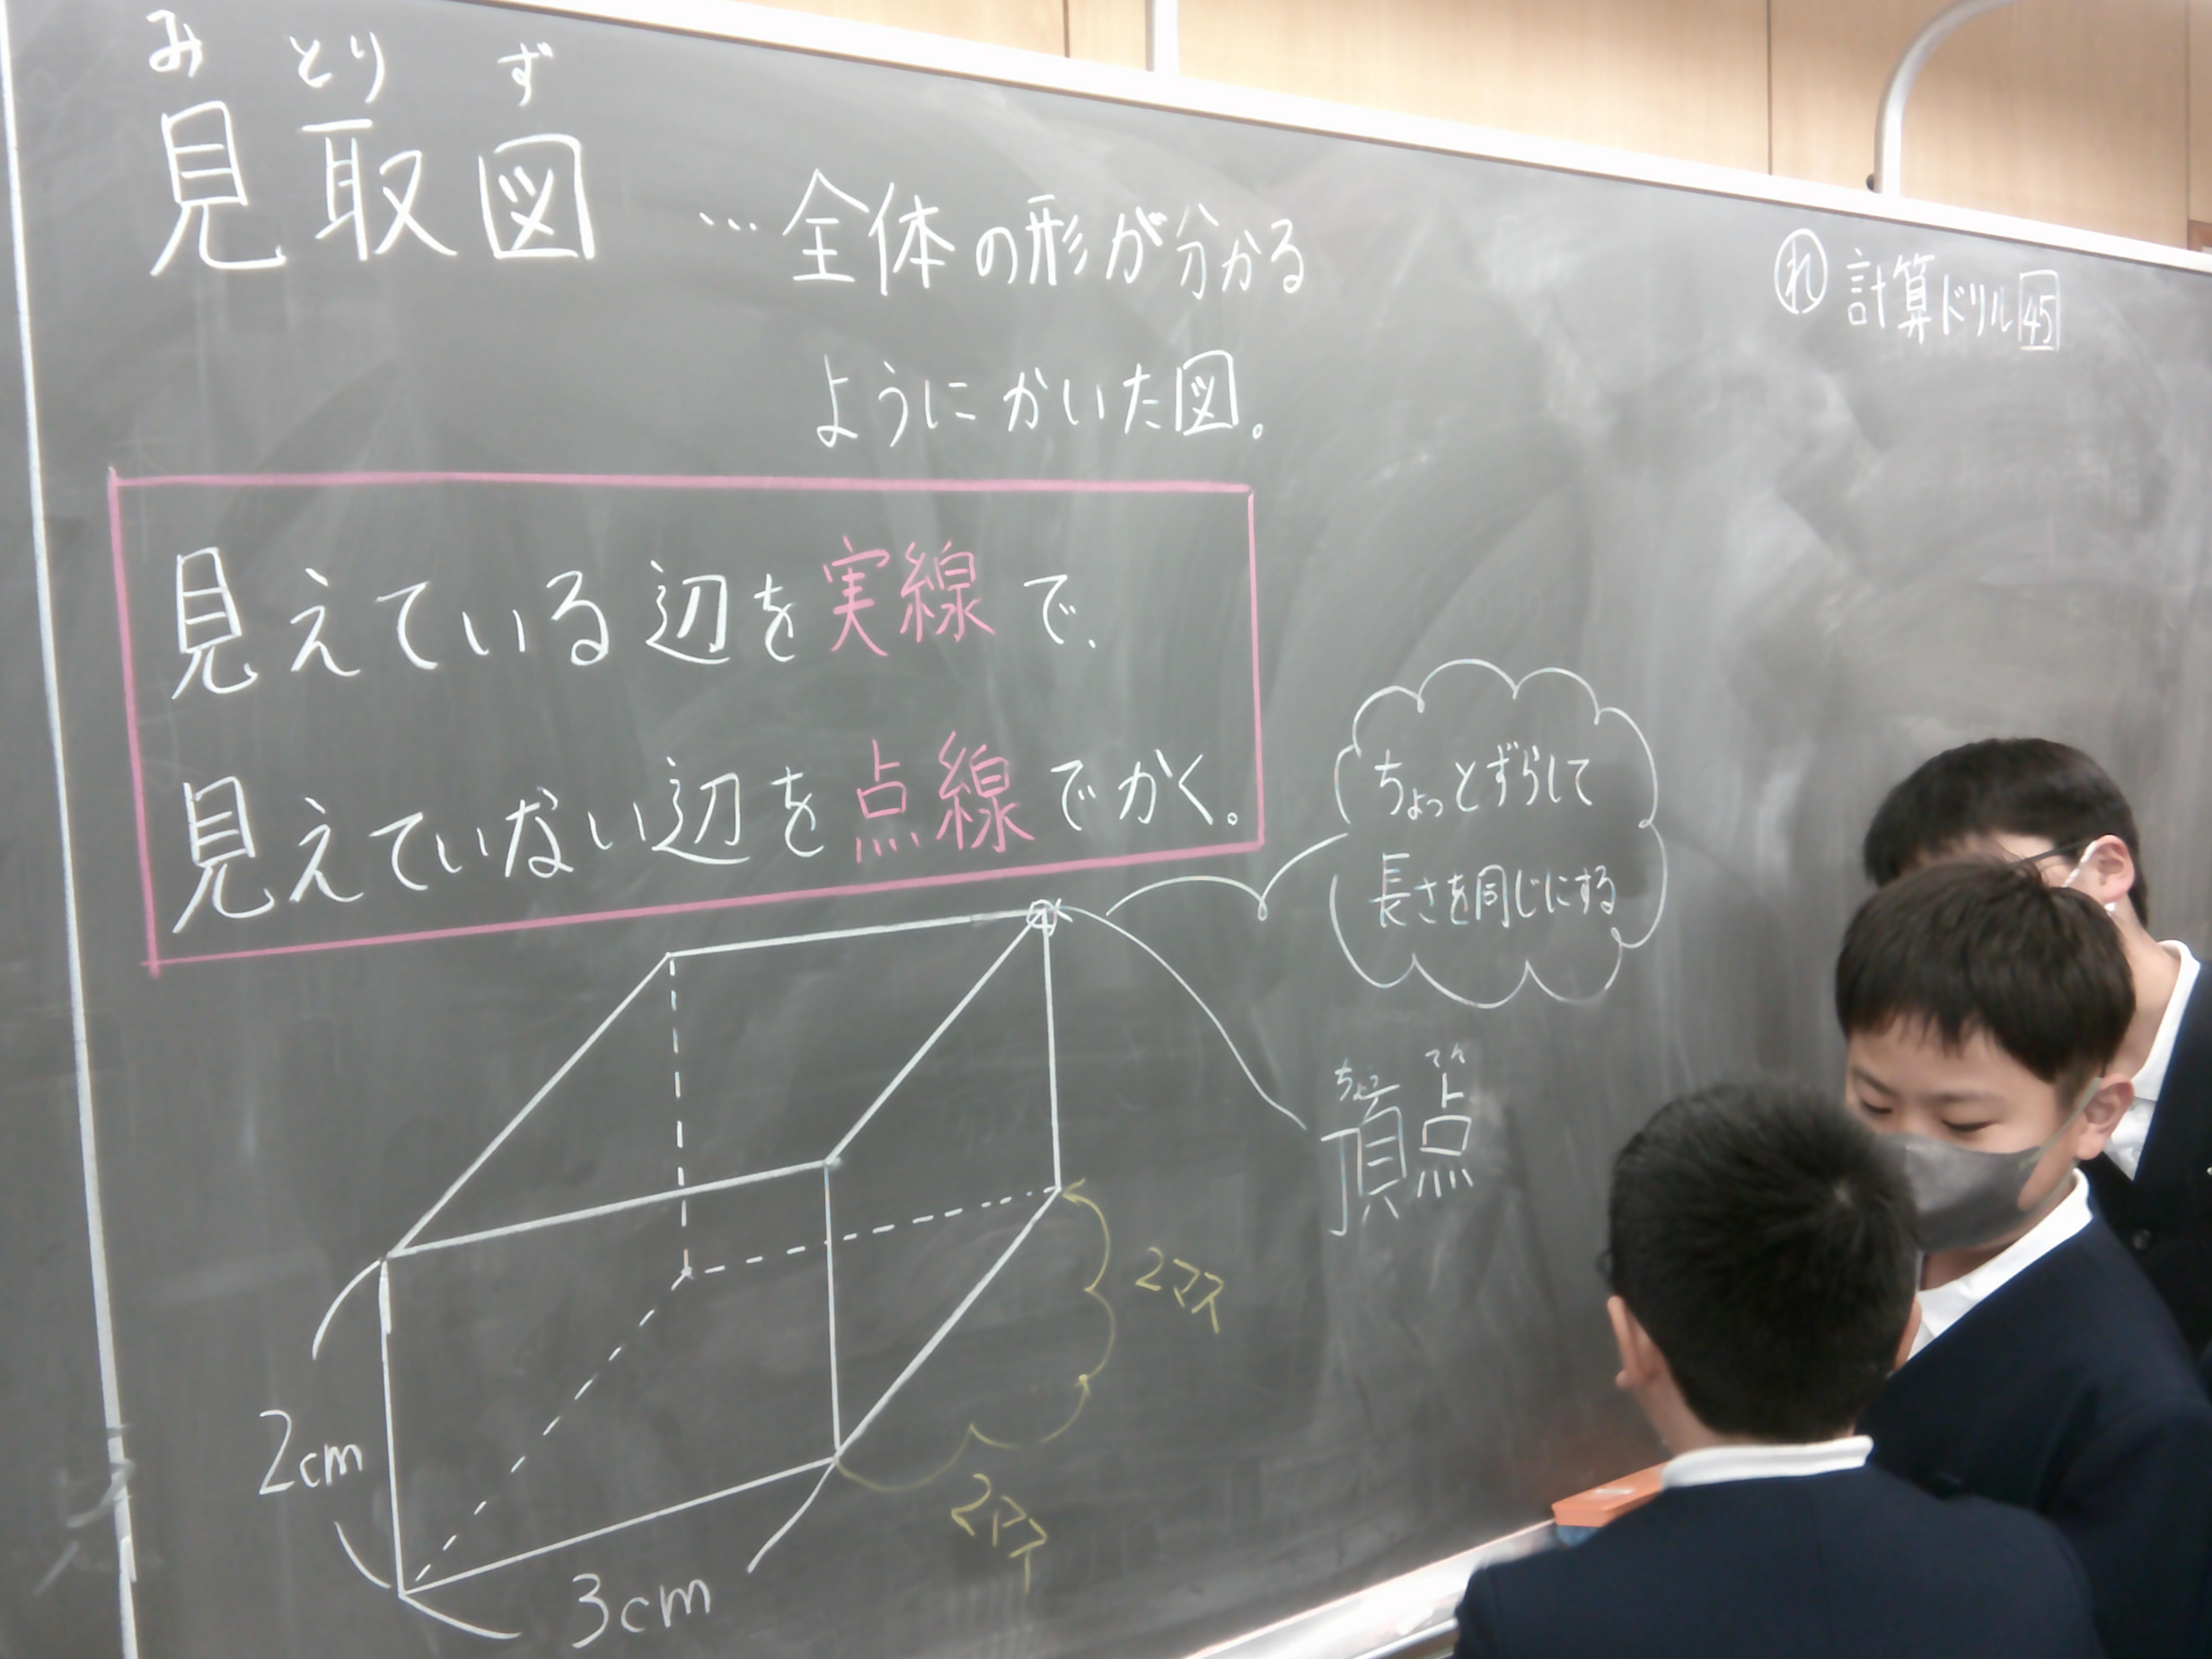 みとりず
見取図
…全体の形が分かる
ようにかいた図。
れ 計算ドリル45
見えている辺を実線で、
見えていない辺を点線でかく。
ちょっとずらして
長さを同じにする
ちょうてん
頂点
2マス
2マス
2cm
3cm